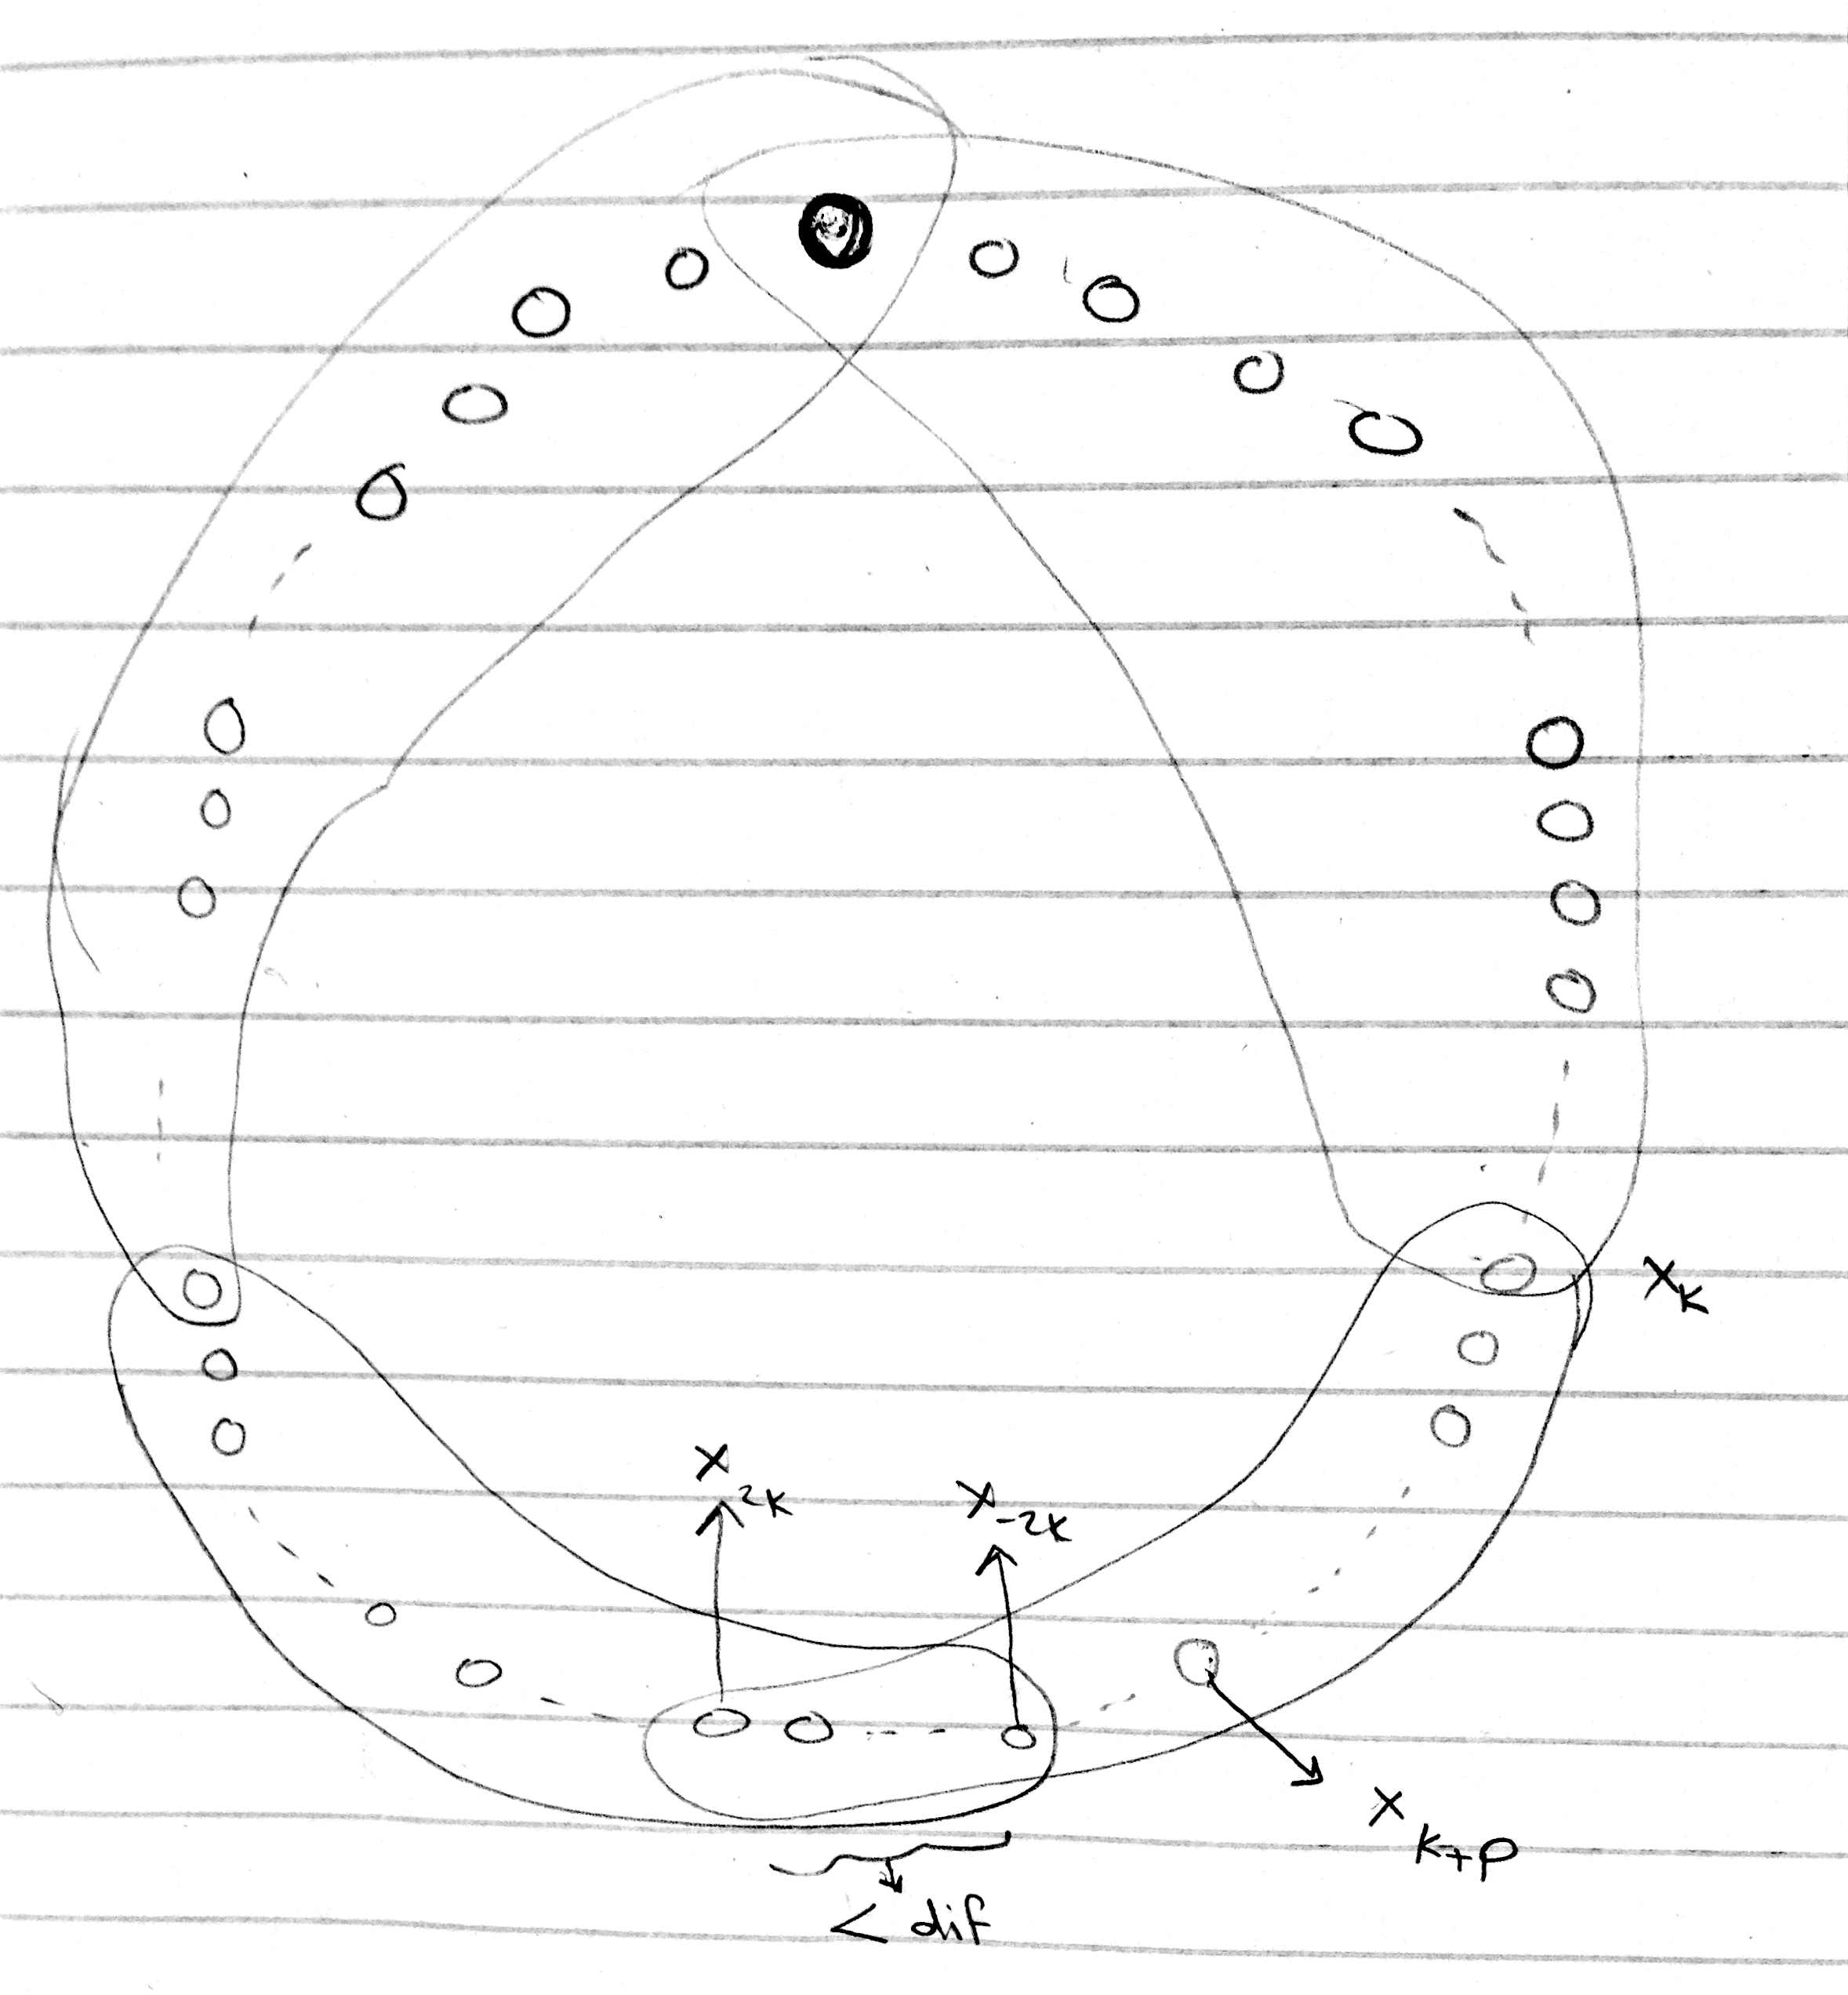 x_k
x_2k
x_-2k
x_k+p
< dif